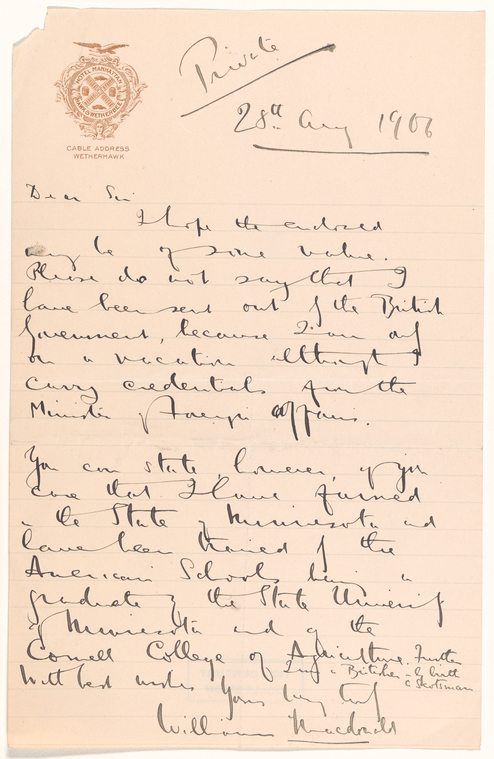 HOTEL MANHATTAN
HAWK & WETHERBEE
CABLE ADDRESS
WETHERHAWK
Private
28th Aug 1906
Dear Sir
I hope the enclosed
may be of some value.
Please do not say that I
have been sent out by the British
Government, because I am only
on a vacation although I
carry credentials from the
Minister of Foreign Affairs.
You can state, however, if you
care that I have farmed
in the State of Minnesota and
have been trained in the
American Schools being a
graduate of the State University
of Minnesota and of the
Cornell College of Agriculture. Further
I am a Britisher by birth
With best wishes a Scotsman
Yours very truly
William Macdonald